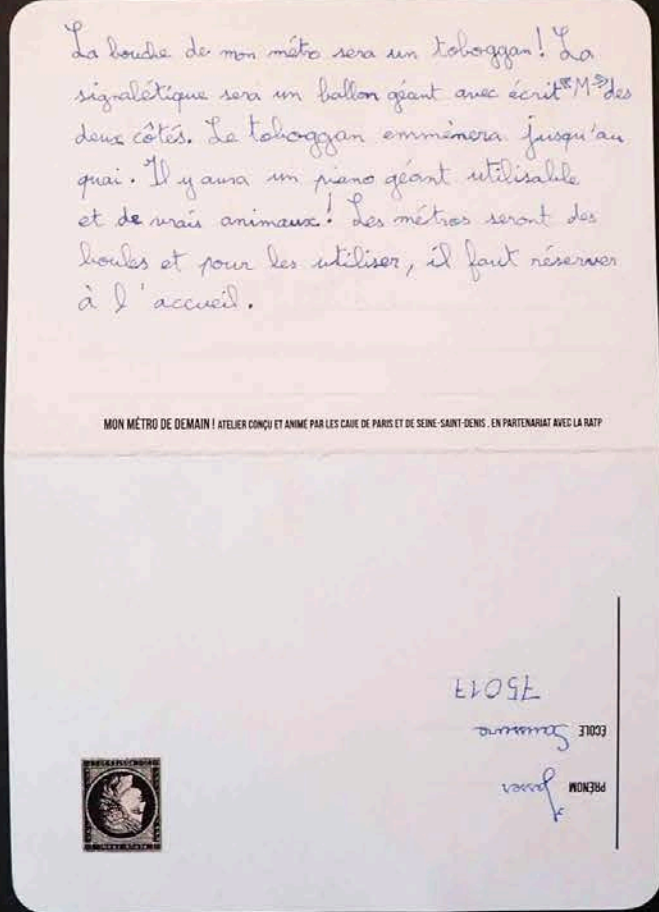 La bouche de mon métro sera un toboggan! La
signalétique sera un ballon géant avec écrit "M" des
deux côtés. Le toboggan emmènera jusqu'au
quai. Il y aura un piano géant utilisable
et de vrais animaux! Les métros seront des
boules et pour les utiliser, il faut réserver
à l'accueil.
MON MÉTRO DE DEMAIN ! ATELIER CONÇU ET ANIMÉ PAR LES CAUE DE PARIS ET DE SEINE-SAINT-DENIS . EN PARTENARIAT AVEC LA RATP
PRÉNOM
ÉCOLE Saussure
75017